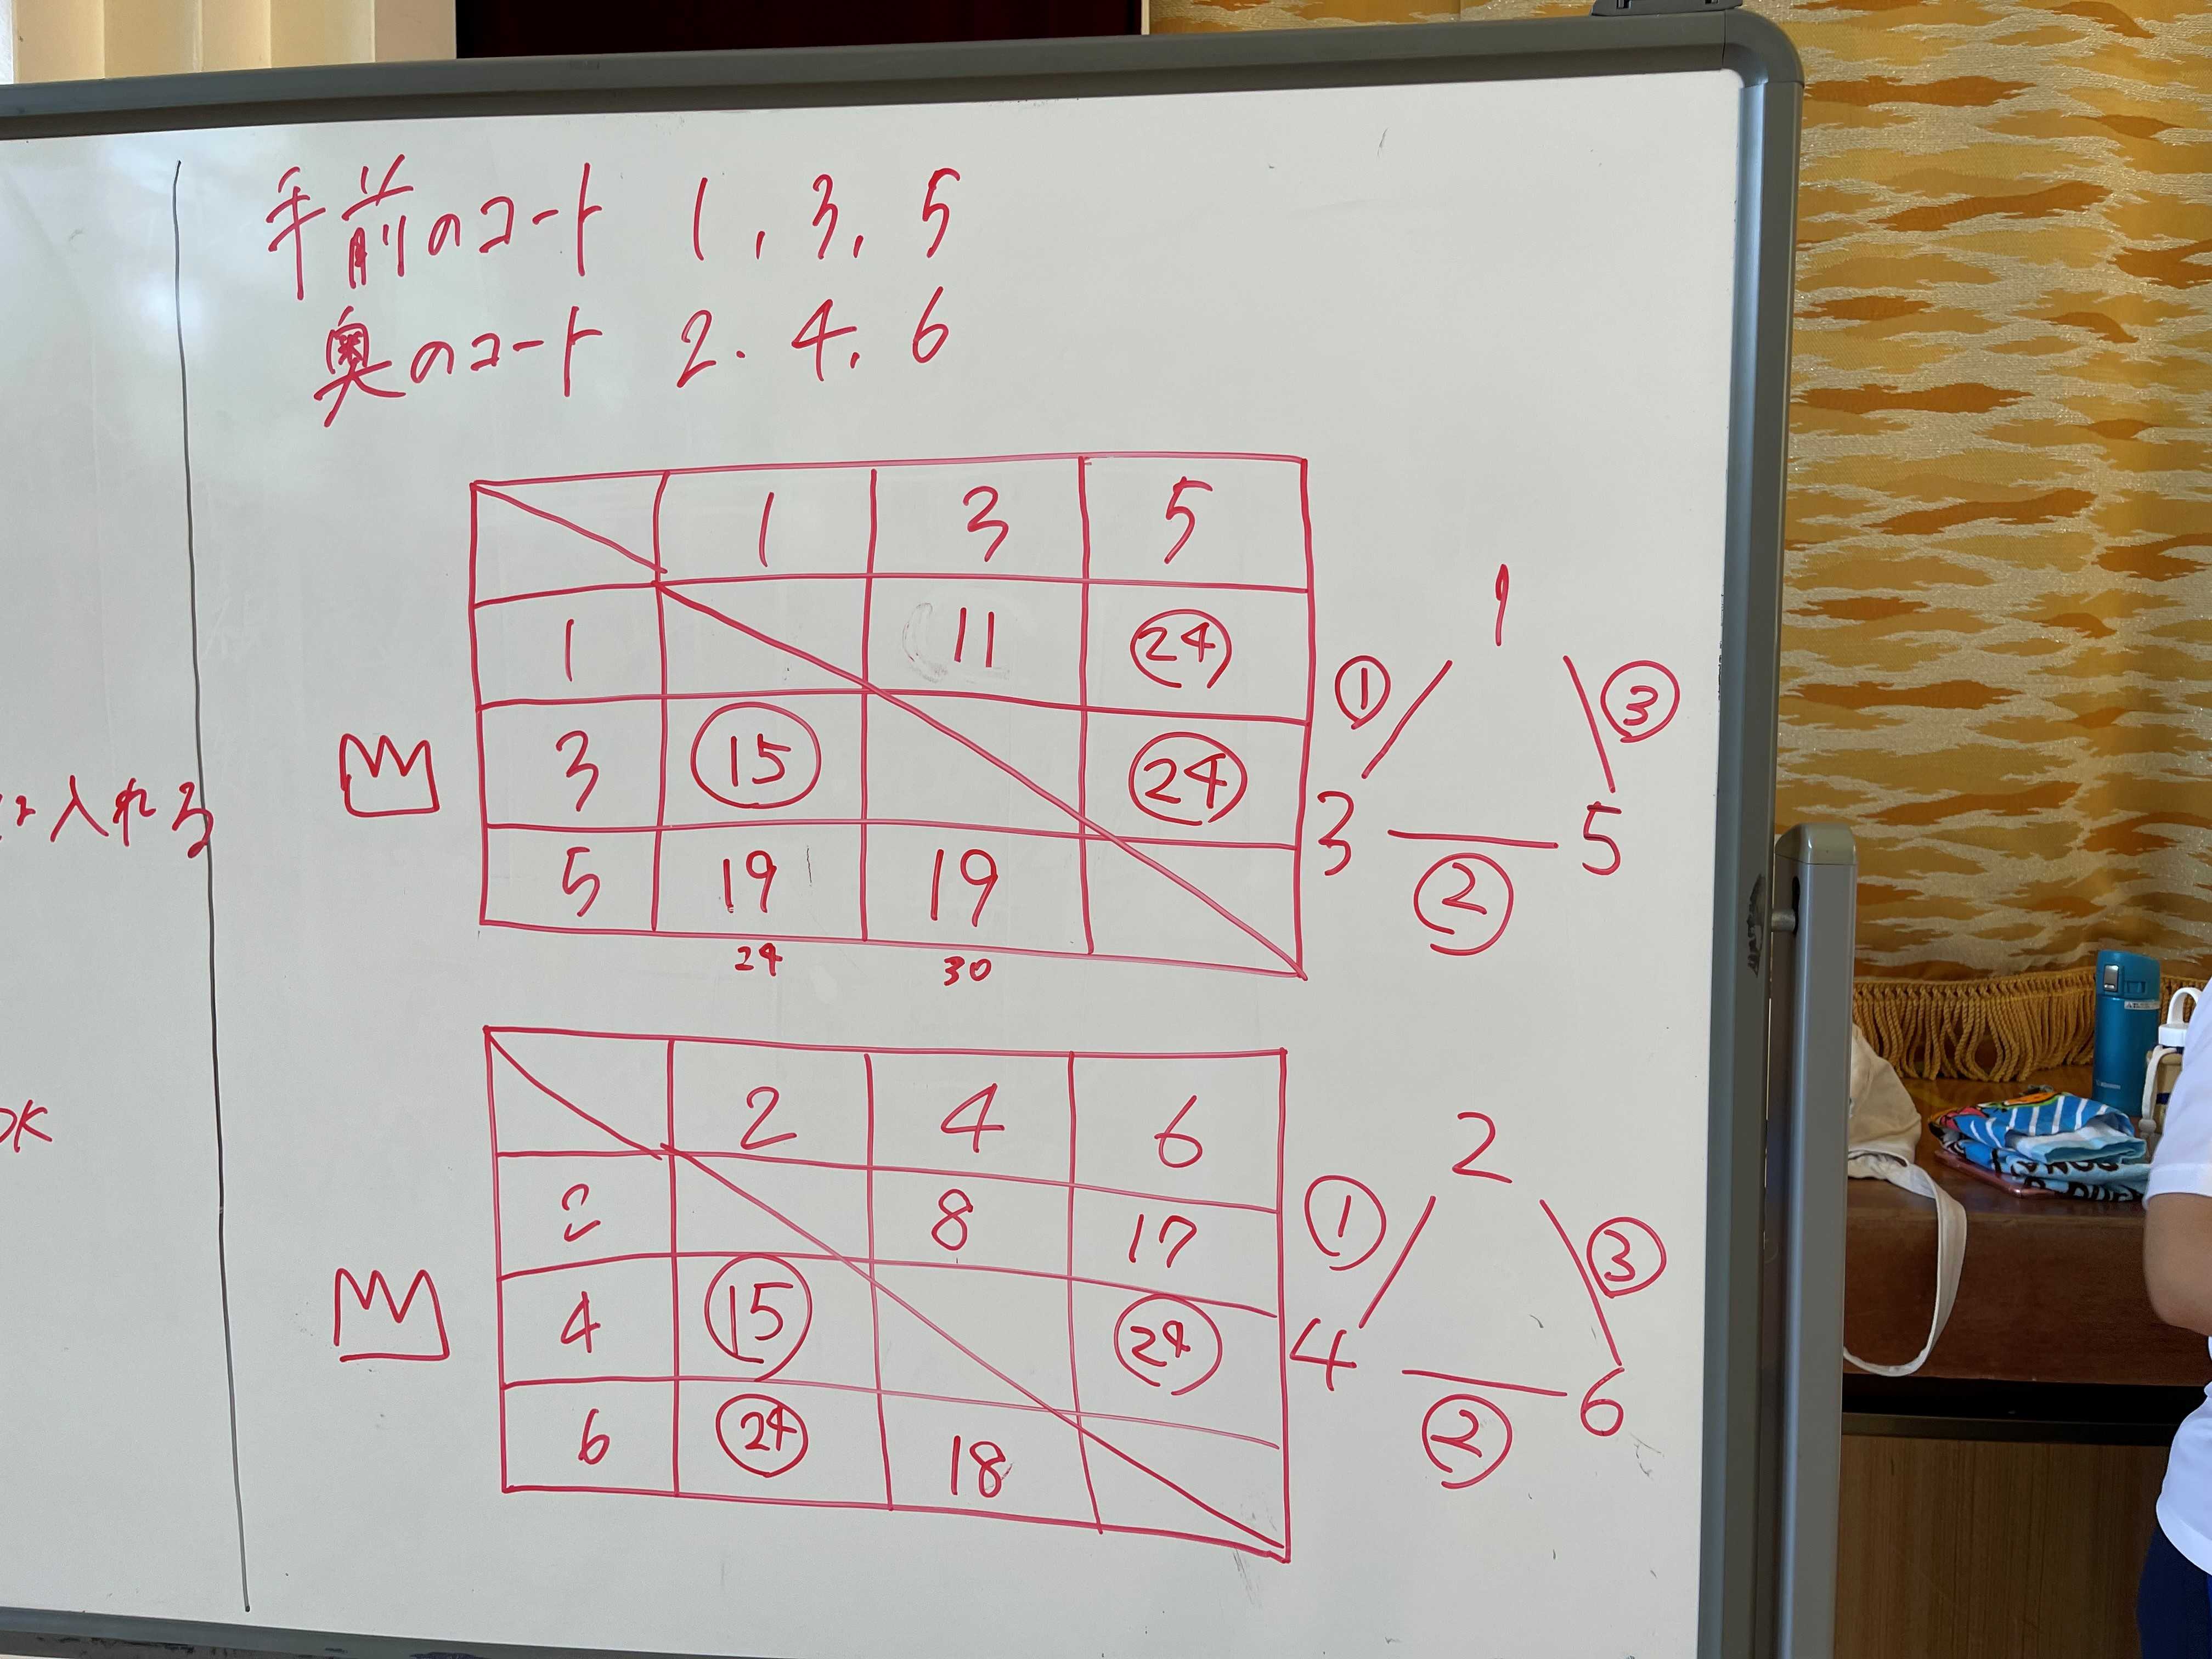 手前のコート 1, 3, 5
奥のコート 2. 4. 6
入れる
OK
1 3 5
1 11 24
3 15 24
5 19 19
24 30
1
① ③
3 5
②
2 4 6
2 8 17
4 15 24
6 24 18
2
① ③
4 6
②